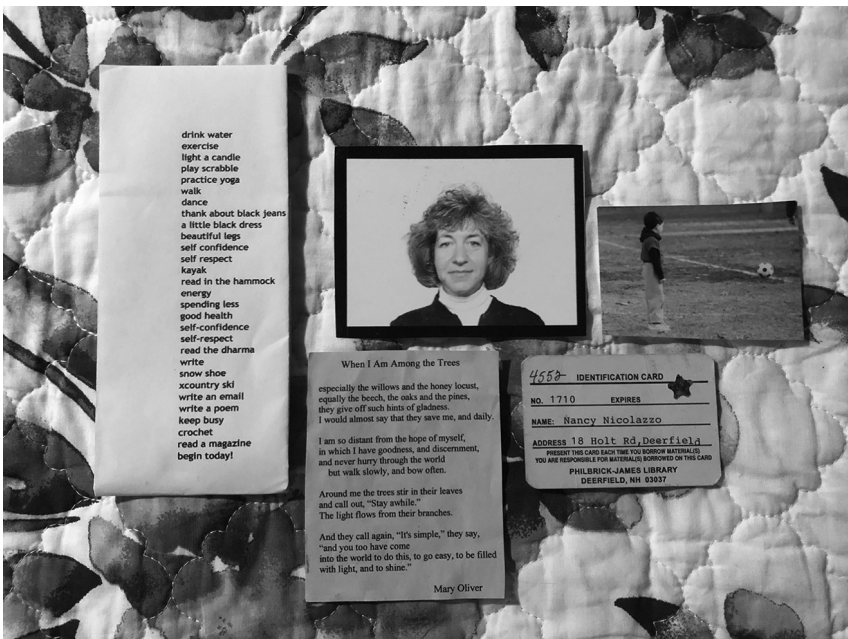 drink water
exercise
light a candle
play scrabble
practice yoga
walk
dance
thank about black jeans
a little black dress
beautiful legs
self confidence
self respect
kayak
read in the hammock
energy
spending less
good health
self-confidence
self-respect
read the dharma
write
snow shoe
xcountry ski
write an email
write a poem
keep busy
crochet
read a magazine
begin today!
When I Am Among the Trees
especially the willows and the honey locust,
equally the beech, the oaks and the pines,
they give off such hints of gladness.
I would almost say that they save me, and daily.
I am so distant from the hope of myself,
in which I have goodness, and discernment,
and never hurry through the world
but walk slowly, and bow often.
Around me the trees stir in their leaves
and call out, “Stay awhile.”
The light flows from their branches.
And they call again, “It's simple,” they say,
“and you too have come
into the world to do this, to go easy, to be filled
with light, and to shine.”
Mary Oliver
4552 IDENTIFICATION CARD
NO. 1710 EXPIRES
NAME: Nancy Nicolazzo
ADDRESS 18 Holt Rd,Deerfield
PRESENT THIS CARD EACH TIME YOU BORROW MATERIAL(S)
YOU ARE RESPONSIBLE FOR MATERIAL(S) BORROWED ON THIS CARD
PHILBRICK-JAMES LIBRARY
DEERFIELD, NH 03037